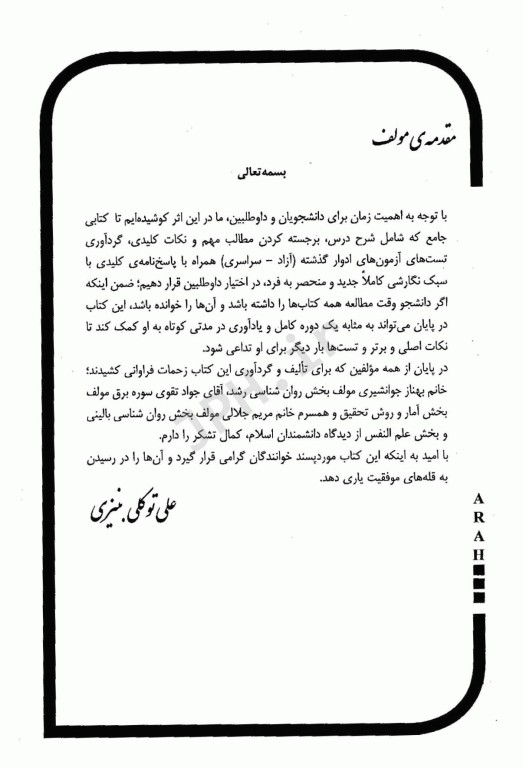 مقدمه‌ی مولف
بسمه تعالی
با توجه به اهمیت زمان برای دانشجویان و داوطلبین، ما در این اثر کوشیده‌ایم تا کتابی
جامع که شامل شرح درس، برجسته کردن مطالب مهم و نکات کلیدی، گردآوری
تست‌های آزمون‌های ادوار گذشته (آزاد - سراسری) همراه با پاسخ‌نامه‌ی کلیدی با
سبک نگارشی کاملاً جدید و منحصر به فرد، در اختیار داوطلبین قرار دهیم؛ ضمن اینکه
اگر دانشجو وقت مطالعه همه کتاب‌ها را داشته باشد و آن‌ها را خوانده باشد، این کتاب
در پایان می‌تواند به مثابه یک دوره کامل و یادآوری در مدتی کوتاه به او کمک کند تا
نکات اصلی و برتر و تست‌ها بار دیگر برای او تداعی شود.
در پایان از همه مؤلفین که برای تألیف و گردآوری این کتاب زحمات فراوانی کشیدند؛
خانم بهناز جوانشیری مولف بخش روان شناسی رشد، آقای جواد تقوی سوره برق مولف
بخش آمار و روش تحقیق و همسرم خانم مریم جلالی مولف بخش روان شناسی بالینی
و بخش علم النفس از دیدگاه دانشمندان اسلام، کمال تشکر را دارم.
با امید به اینکه این کتاب موردپسند خوانندگان گرامی قرار گیرد و آن‌ها را در رسیدن
به قله‌های موفقیت یاری دهد.
علی توکلی بنیزی
A
R
A
H
JPH.ir